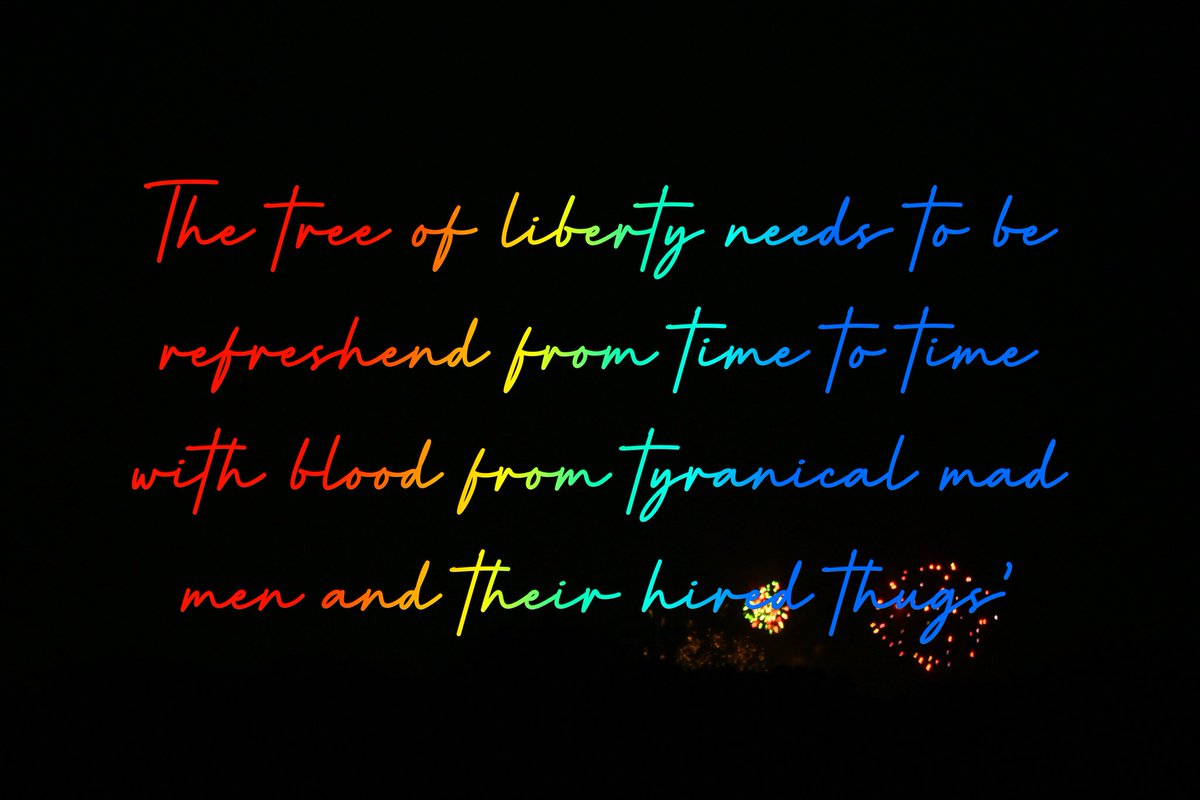 The tree of liberty needs to be
refreshend from time to time
with blood from tyranical mad
men and their hired thugs'